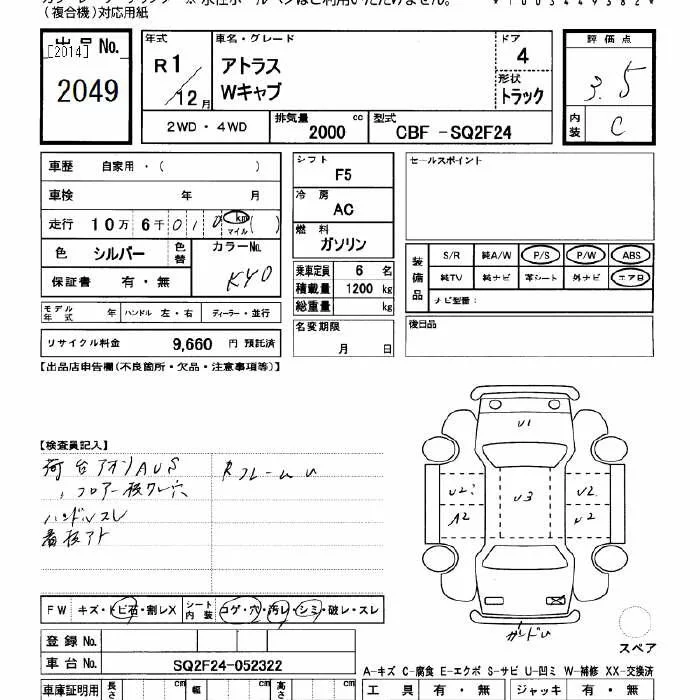 (複合機)対応用紙
出品No.
[2014]
2049
年式
R1/12月
車名・グレード
アトラス
Wキャブ
ドア
4
形状
トラック
評価点
3.5
内装
C
2WD・4WD
排気量 2000 cc
型式 CBF-SQ2F24
車歴 自家用・( )
車検 年 月
走行 10万6千010 km マイル ( )
色 シルバー 色替 カラーNo. KY0
保証書 有・無
モデル年式 年 ハンドル 左・右 ディーラー・並行
リサイクル料金 9,660 円 預託済
シフト
F5
冷房
AC
燃料
ガソリン
乗車定員 6 名
積載量 1200 kg
総重量 kg
名変期限
月 日
セールスポイント
装備品
S/R 純A/W P/S P/W ABS
純TV 純ナビ 革シート 外ナビ エアB
ナビ型番:
後日品
【出品店申告欄(不良箇所・欠品・注意事項等)】
【検査員記入】
荷台アオリAUS
フロアー板ワレ穴
ハンドルスレ
看板アト
RフレームU
U1
U2
U3
U2
A2
U2
スペア
FW キズ・トビ石・割レX シート内装 コゲ・穴・汚レ・シミ・破レ・スレ
登録No.
車台No. SQ2F24-052322
A-キズ C-腐食 E-エクボ S-サビ U-凹ミ W-補修 XX-交換済
車庫証明用 長さ cm 幅 cm 高さ cm
工具 有・無 ジャッキ 有・無